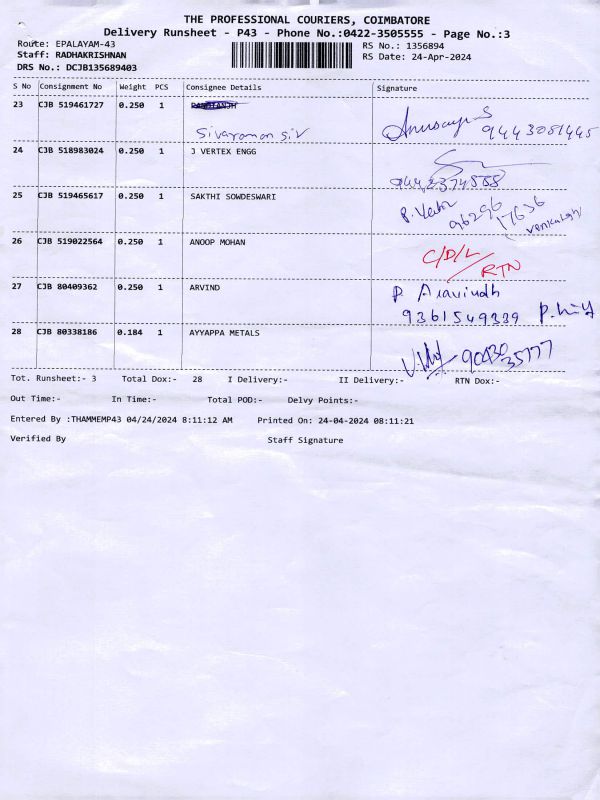 THE PROFESSIONAL COURIERS, COIMBATORE
Delivery Runsheet - P43 - Phone No.:0422-3505555 - Page No.:3
Route: EPALAYAM-43
RS No.: 1356894
Staff: RADHAKRISHNAN
RS Date: 24-Apr-2024
DRS No.: DCJB135689403
S No Consignment No Weight PCS Consignee Details Signature
23 CJB 519461727 0.250 1
Sivaraman 9443081445
24 CJB 518983024 0.250 1 J VERTEX ENGG
25 CJB 519465617 0.250 1 SAKTHI SOWDESWARI
96296 17636
26 CJB 519022564 0.250 1 ANOOP MOHAN
C/D/L/
RTN
27 CJB 80409362 0.250 1 ARVIND P Aravindh
9361549339
28 CJB 80338186 0.184 1 AYYAPPA METALS
Tot. Runsheet:- 3 Total Dox:- 28 I Delivery:- II Delivery:- RTN Dox:-
Out Time:- In Time:- Total POD:- Delvy Points:-
Entered By :THAMMEMP43 04/24/2024 8:11:12 AM Printed On: 24-04-2024 08:11:21
Verified By Staff Signature